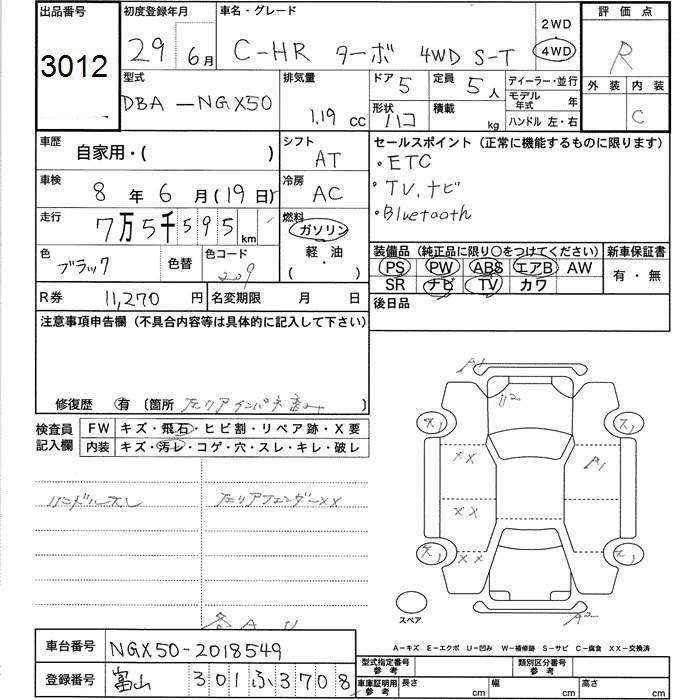 出品番号 初度登録年月 車名・グレード 評価点
3012 29年6月 C-HR ターボ 4WD S-T 2WD 4WD R
型式 排気量 ドア 5 定員 5人 ディーラー・並行 外装 内装
DBA-NGX50 1.19 cc 形状 ハコ 積載 kg モデル年式 年 C
ハンドル 左・右
車歴 自家用・( ) シフト AT セールスポイント(正常に機能するものに限ります)
・ETC
車検 8年6月(19日) 冷房 AC ・TV,ナビ
走行 7万5千595km 燃料 ガソリン ・Bluetooth
軽・油
・( )
色 ブラック 色替 色コード 209 装備品(純正品に限り○をつけてください) 新車保証書
PS PW ABS エアB AW 有・無
R券 11,270円 名変期限 月 日 SR ナビ TV カワ
注意事項申告欄(不具合内容等は具体的に記入して下さい) 後日品
修復歴 有 〔箇所 左リアインパネ 〕
検査員記入欄 FW キズ・飛石・ヒビ割・リペア跡・X要
内装 キズ・汚レ・コゲ・穴・スレ・キレ・破レ
ハンドルスレ 左リアフェンダーXX
各A U
A1
U2
XX A1
XX
XX
A2
スペア
A-キズ E-エクボ U-凹み W-補修跡 S-サビ C-腐食 XX-交換済
車台番号 NGX50-2018549
登録番号 富山 301 ふ 3708
型式指定番号 参考 類別区分番号 参考
車庫証明用 参考 長さ cm 幅 cm 高さ cm